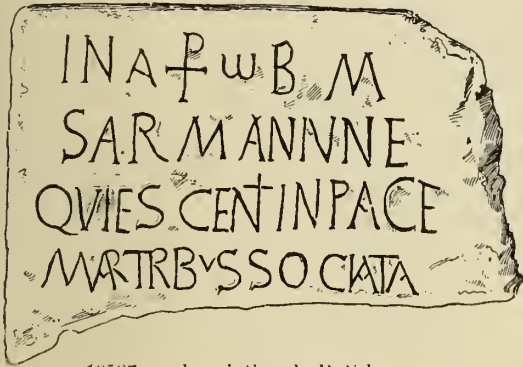 IN A ⳨ ω B M
SARMANIVNE
QVIESCENTINPACE
MARTRBVSSOCIATA